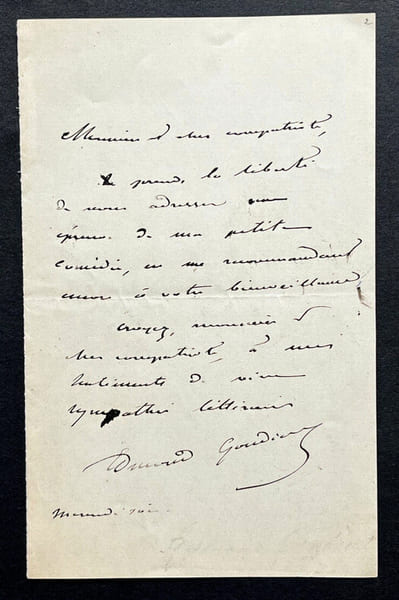 2
Monsieur & cher compatriote,
Je prends la liberté
de vous adresser une
épreuve de ma petite
comédie, en me recommandant
encore à votre bienveillance
Croyez, monsieur &
cher compatriote, à mes
sentiments de vive
sympathie littéraire
Edmond Gondinet
Mercredi soir